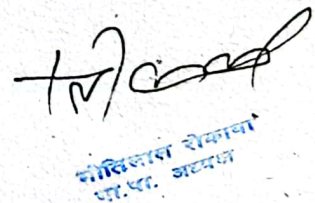 मोतिलाल रोकाया
गा.पा. अध्यक्ष